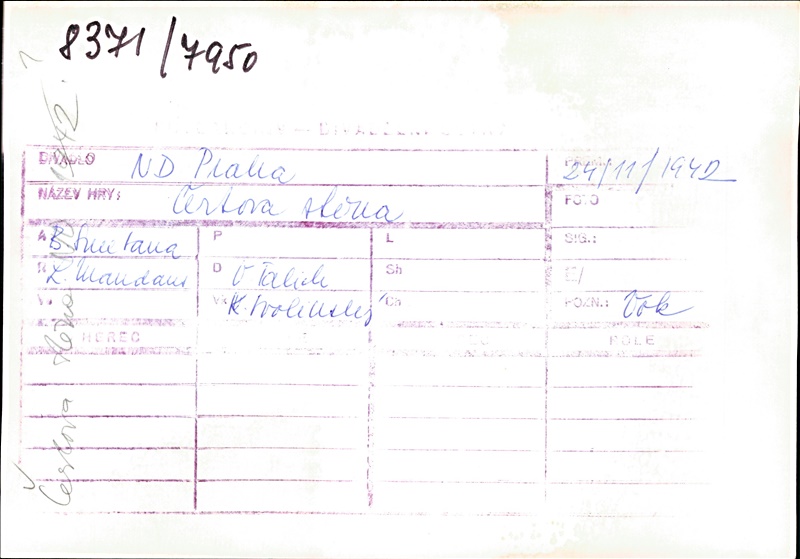 8371/7950
DIVADLO ND Praha 24/11/1942
NÁZEV HRY: Čertova stěna FOTO
A B. Smetana P L SIG.:
R L. Mandaus D V Talich Sh E/
K. Svolinský Ch POZN.: Vok
HEREC ROLE
Čertova stěna ND 1942